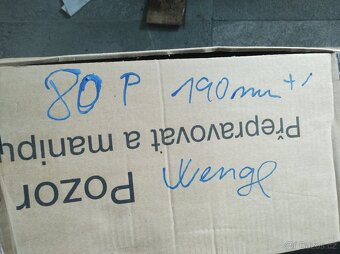 80 P 190mm +/
Přepravovat a manipu
Pozor
Wenge